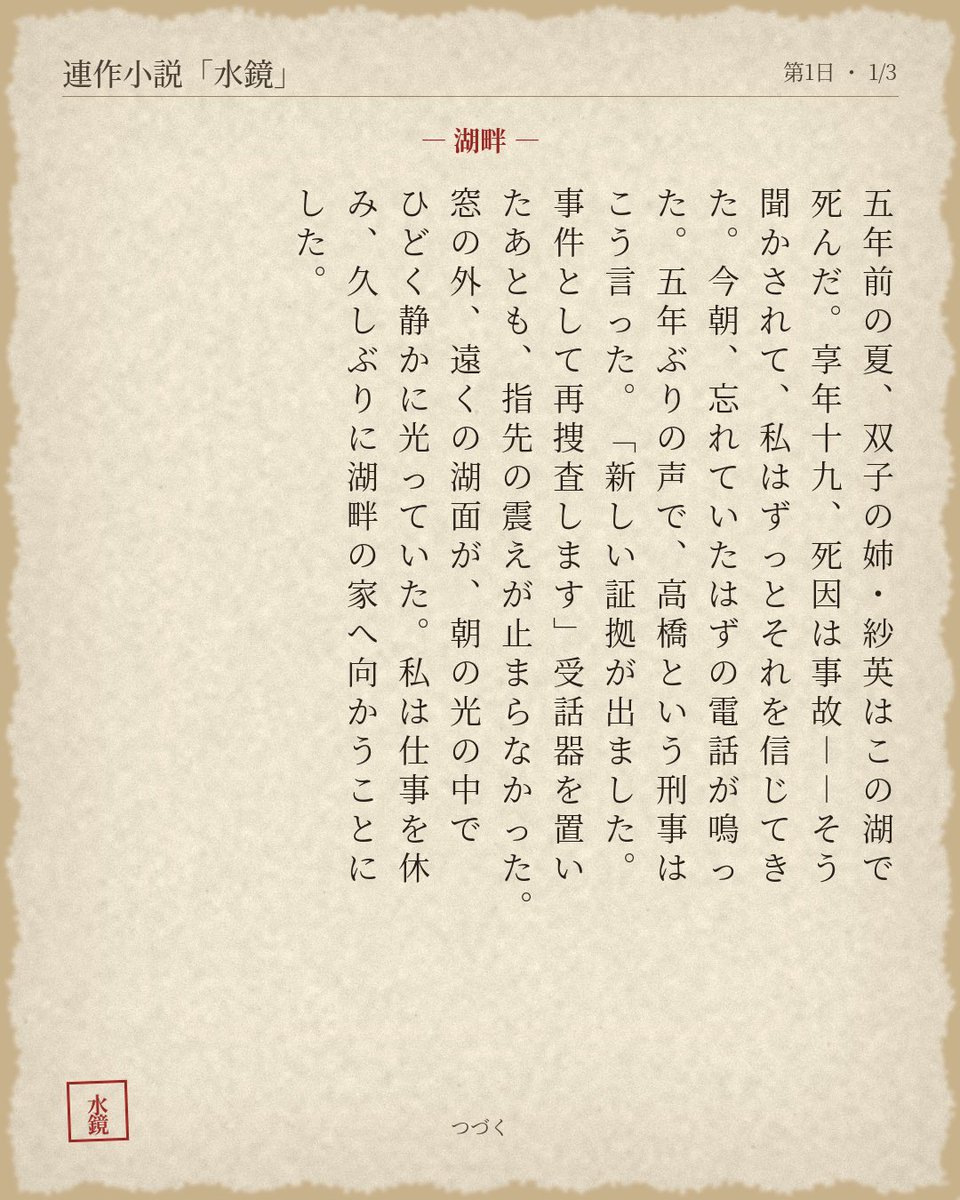 連作小説「水鏡」
第1日 ・ 1/3
— 湖畔 —
五年前の夏、双子の姉・紗英はこの湖で
死んだ。享年十九、死因は事故——そう
聞かされて、私はずっとそれを信じてき
た。今朝、忘れていたはずの電話が鳴っ
た。五年ぶりの声で、高橋という刑事は
こう言った。「新しい証拠が出ました。
事件として再捜査します」受話器を置い
たあとも、指先の震えが止まらなかった。
窓の外、遠くの湖面が、朝の光の中で
ひどく静かに光っていた。私は仕事を休
み、久しぶりに湖畔の家へ向かうことに
した。
水鏡
つづく